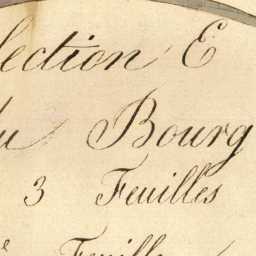 Section E
du Bourg
3 Feuilles
e Feuille